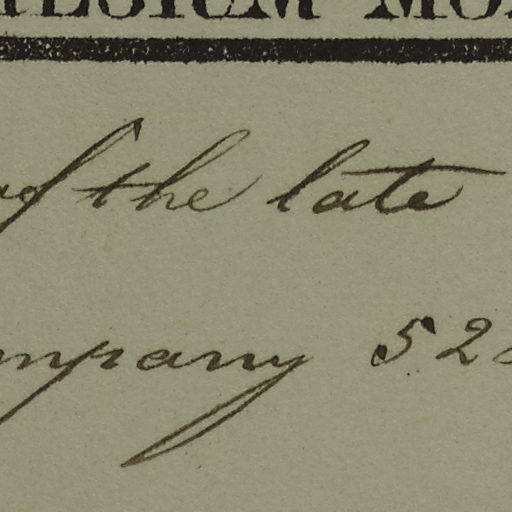 of the late
ompany 52